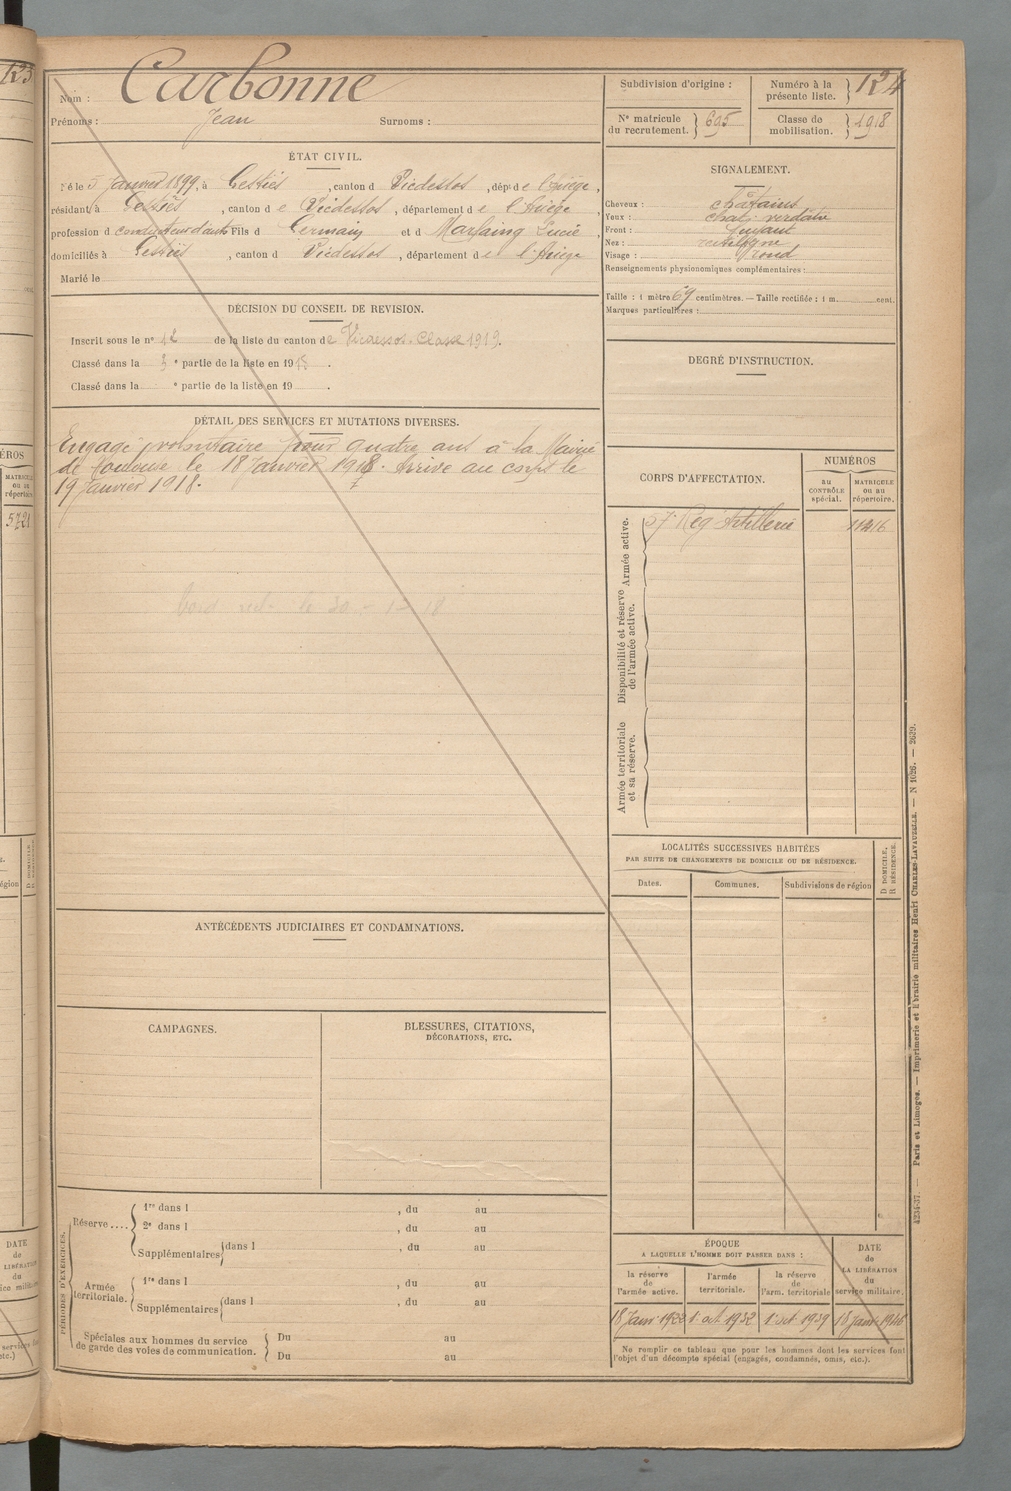 123
Nom : Carbonne
Prénoms : Jean Surnoms :
Subdivision d'origine :
Numéro à la présente liste. } 124
Nº matricule du recrutement. } 695
Classe de mobilisation. } 1918
ÉTAT CIVIL.
Né le 5 Janvier 1899, à Gestiès, canton de Vicdessos, dépt de l'Ariège,
résidant à Gestiès, canton de Vicdessos, département de l'Ariège,
profession d conducteur d'auto Fils d Germain et d Marfaing Lucie,
domiciliés à Gestiès, canton d Vicdessos, département de l'Ariège
Marié le
SIGNALEMENT.
Cheveux : châtains
Yeux : chat. verdatre
Front : fuyant
Nez : rectiligne
Visage : rond
Renseignements physionomiques complémentaires :
Taille : 1 mètre 69 centimètres. — Taille rectifiée : 1 m. cent.
Marques particulières :
DÉCISION DU CONSEIL DE REVISION.
Inscrit sous le nº 12 de la liste du canton de Vicdessos. Classe 1919.
Classé dans la 3 e partie de la liste en 1918.
Classé dans la e partie de la liste en 19 .
DEGRÉ D'INSTRUCTION.
DÉTAIL DES SERVICES ET MUTATIONS DIVERSES.
Engagé volontaire pour quatre ans à la Mairie
de Toulouse le 18 Janvier 1918. Arrivé au corps le
19 Janvier 1918.
le 30
CORPS D'AFFECTATION.
NUMÉROS
au CONTRÔLE spécial.
MATRICULE ou au répertoire.
Armée active.
57e Reg Artillerie
Disponibilité et réserve de l'armée active.
Armée territoriale et sa réserve.
LOCALITÉS SUCCESSIVES HABITÉES
PAR SUITE DE CHANGEMENTS DE DOMICILE OU DE RÉSIDENCE.
Dates. Communes. Subdivisions de région
D. DOMICILE, R. RÉSIDENCE.
ANTÉCÉDENTS JUDICIAIRES ET CONDAMNATIONS.
CAMPAGNES.
BLESSURES, CITATIONS,
DÉCORATIONS, ETC.
PÉRIODES D'EXERCICES.
Réserve .... 1re dans l , du au
2e dans l , du au
Supplémentaires dans l , du au
Armée territoriale. 1re dans l , du au
Supplémentaires dans l , du au
Spéciales aux hommes du service de garde des voies de communication. Du au
Du au
ÉPOQUE
A LAQUELLE L'HOMME DOIT PASSER DANS :
DATE de LA LIBÉRATION du service militaire.
la réserve de l'armée active.
l'armée territoriale.
la réserve de l'arm. territoriale
18 Janv 1922 1er oct 1932 1er oct 1939 18 Janv 1946
Ne remplir ce tableau que pour les hommes dont les services font
l'objet d'un décompte spécial (engagés, condamnés, omis, etc.).
4234-37. — Paris et Limoges. — Imprimerie et librairie militaires Henri CHARLES-LAVAUZELLE. — N 1026. — 2629.